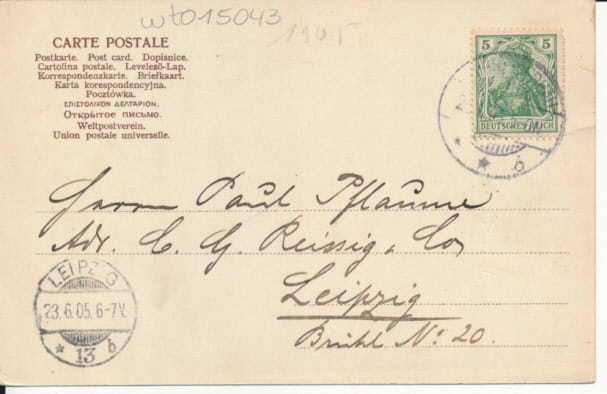 wto15043
1905
CARTE POSTALE
Postkarte. Post card. Dopisnice.
Cartolina postale. Levelező-Lap.
Korrespondenzkarte. Briefkaart.
Karta korespondencyjna.
Pocztówka.
ΕΠΙΣΤΟΛΙΚΟΝ ΔΕΛΤΑΡΙΟΝ.
Открытое письмо.
Weltpostverein.
Union postale universelle.
5 5
DEUTSCHES REICH
* * b
Herrn Paul Pflaume
Adr. C. G. Reissig & Co
Leipzig
Brühl No. 20.
LEIPZIG
23.6.05.6-7V.
* 13 b